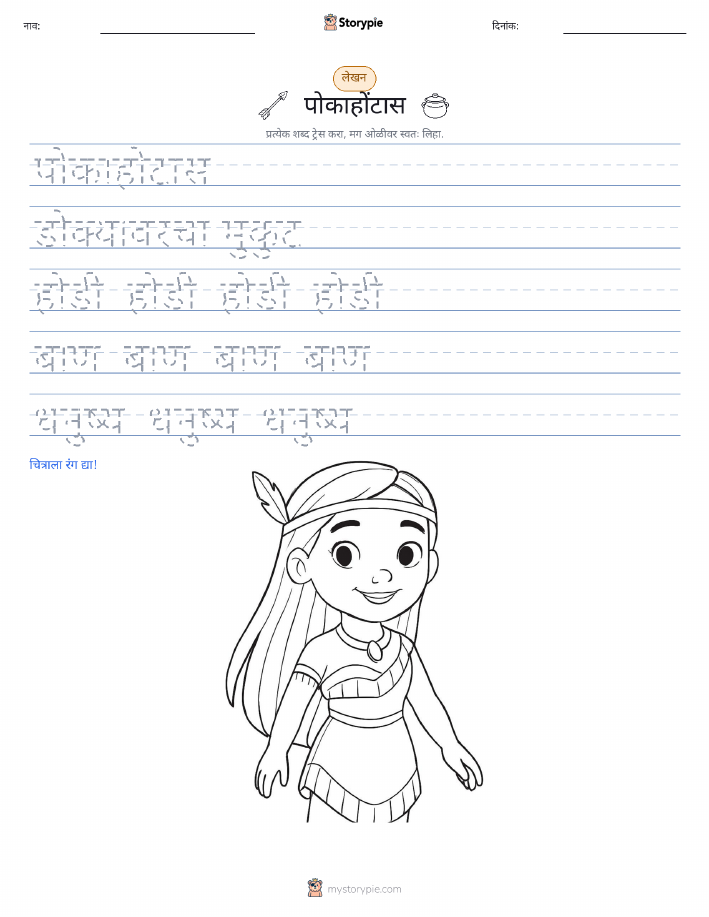 नाव:
Storypie
दिनांक:
लेखन
पोकाहोंटास
प्रत्येक शब्द ट्रेस करा, मग ओळीवर स्वतः लिहा.
पोकाहोंटास
डोक्यावरचा मुकुट
होडी होडी होडी होडी
बाण बाण बाण बाण
धनुष्य धनुष्य धनुष्य
चित्राला रंग द्या!
mystorypie.com